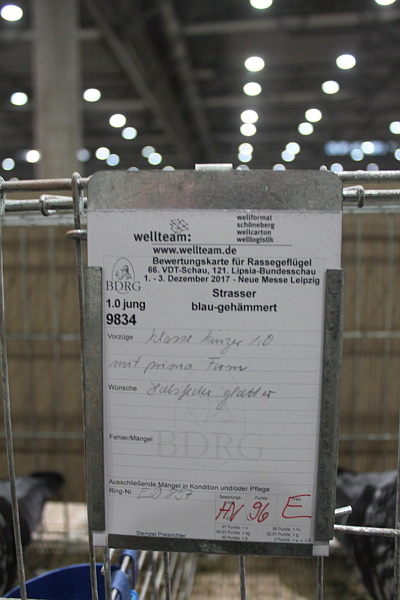 wellteam:
wellformat
schöneberg
wellcarton
welllogistik
www.wellteam.de
Bewertungskarte für Rassegeflügel
66. VDT-Schau, 121. Lipsia-Bundesschau
1. - 3. Dezember 2017 - Neue Messe Leipzig
BDRG
Strasser
1.0 jung
blau-gehämmert
9834
Vorzüge klasse kurzer 1,0
mit prima Form
Wünsche Halsfeder glatter
BDRG
Fehler/Mängel
Ausschließende Mängel in Kondition und/oder Pflege
Ring-Nr.
Bewertungs- Punkte Preis
HV 96 E
97 Punkte = v
96 Punkte = hv
Stempel Preisrichter